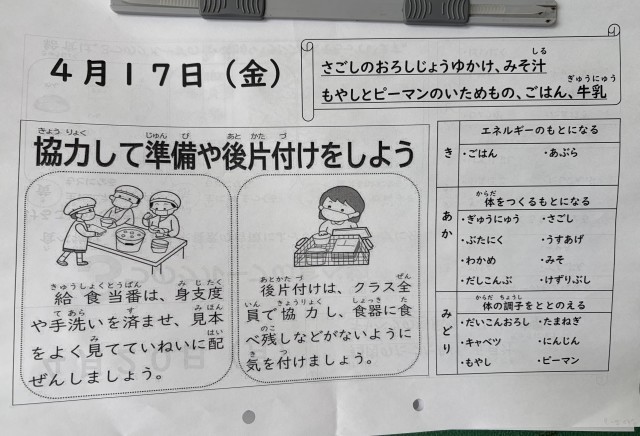 ４月１７日（金）
さごしのおろしじょうゆかけ、みそ汁
もやしとピーマンのいためもの、ごはん、牛乳
協力して準備や後片付けをしよう
給食当番は、身支度
や手洗いを済ませ、見本
をよく見てていねいに配
ぜんしましょう。
後片付けは、クラス全
員で協力し、食器に食
べ残しなどがないように
気を付けましょう。
き
エネルギーのもとになる
・ごはん ・あぶら
あか
体をつくるもとになる
・ぎゅうにゅう ・さごし
・ぶたにく ・うすあげ
・わかめ ・みそ
・だしこんぶ ・けずりぶし
みどり
体の調子をととのえる
・だいこんおろし ・たまねぎ
・キャベツ ・にんじん
・もやし ・ピーマン